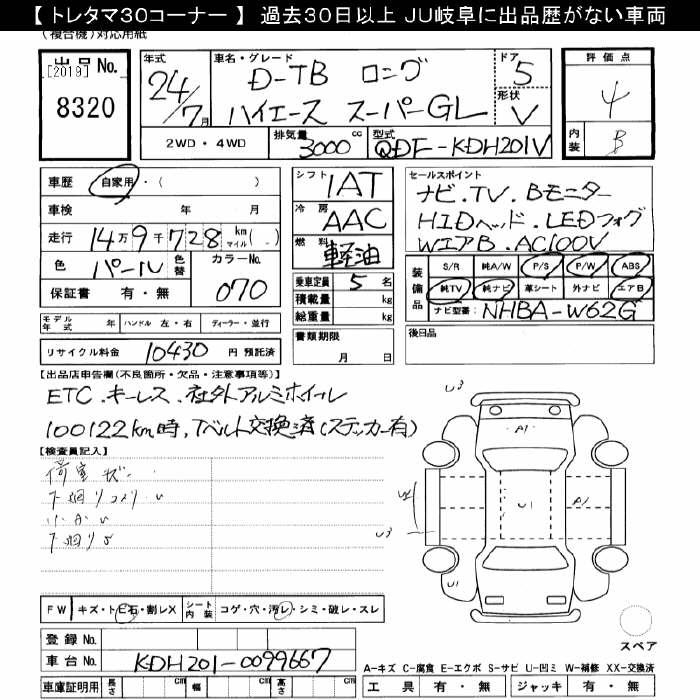 【 トレタマ30コーナー 】 過去30日以上 JU岐阜に出品歴がない車両
(複合機)対応用紙
出品No.
[2019]
8320
年式
24/7月
車名・グレード
D-TB ロング
ハイエース スーパーGL
ドア
5
形状
V
評価点
4
内装
B
2WD・4WD
排気量
3000 cc
型式
QDF-KDH201V
車歴
自家用・( )
車検 年 月
走行
14万9千728 km マイル ( - )
色
パール
色替
カラーNo.
070
保証書 有・無
シフト
IAT
冷房
AAC
燃料
軽油
乗車定員 5 名
積載量 kg
総重量 kg
セールスポイント
ナビ.TV.Bモニター
HIDヘッド.LEDフォグ
WエアB.AC100V
装備品
S/R 純A/W P/S P/W ABS
純TV 純ナビ 革シート 外ナビ エアB
ナビ型番: NHBA-W62G
モデル年式 年 ハンドル 左・右 ディーラー・並行
書類期限
月 日
後日品
リサイクル料金 10430 円 預託済
【出品店申告欄(不良箇所・欠品・注意事項等)】
ETC.キーレス.社外アルミホイール
100122km時,Tベルト交換済(ステッカー有)
【検査員記入】
荷室
下廻り
下廻り
U3
A1
U1
A1
U3
U1
FW キズ・トビ石・割レX
シート内装 コゲ・穴・汚レ・シミ・破レ・スレ
登録No.
車台No. KDH201-0099667
車庫証明用 長さ cm 幅 cm 高さ cm
スペア
A-キズ C-腐食 E-エクボ S-サビ U-凹ミ W-補修 XX-交換済
工具 有・無 ジャッキ 有・無